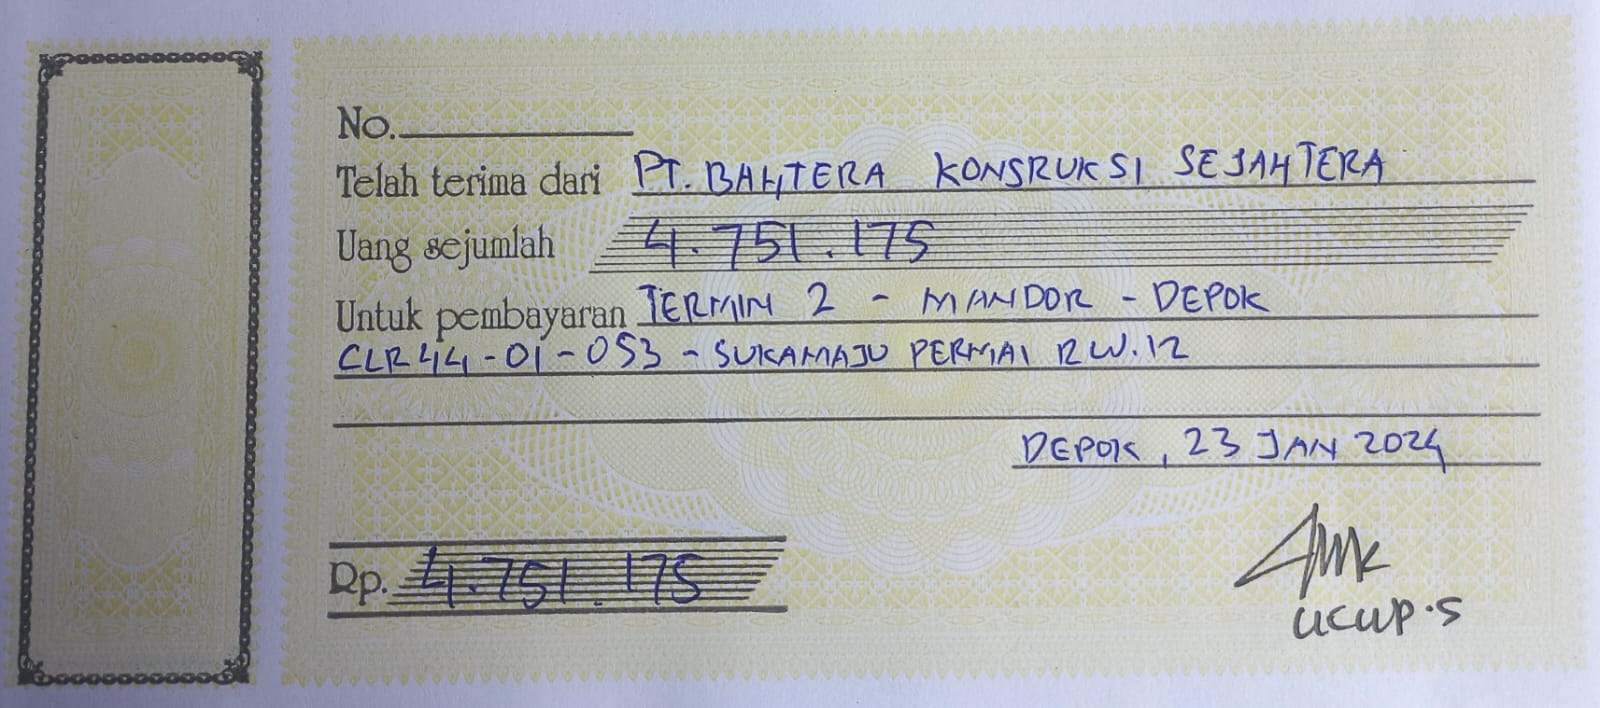 No.
Telah terima dari PT. BAHTERA KONSRUKSI SEJAHTERA
Uang sejumlah 4.751.175
Untuk pembayaran TERMIN 2 - MANDOR - DEPOK
CLR44-01-053 - SUKAMAJU PERMAI RW.12
DEPOK, 23 JAN 2024
Rp. 4.751.175
UCUP.S